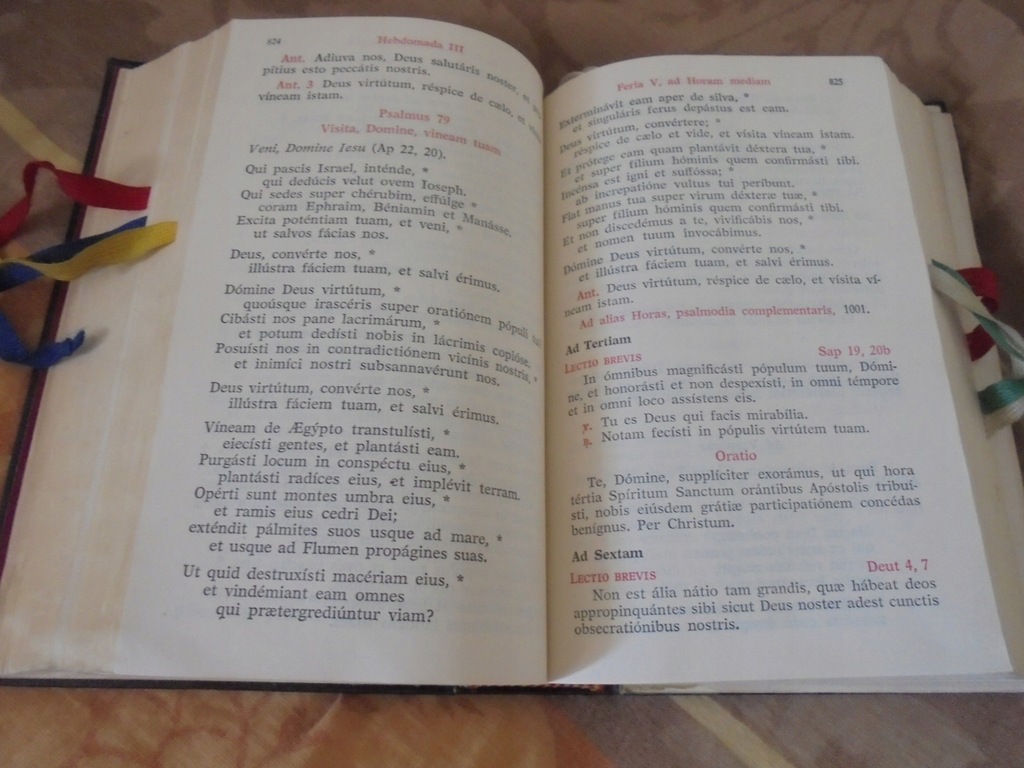 824
Hebdomada III
Ant. Adiuva nos, Deus salutáris noster, et
pítius esto peccátis nostris.
Ant. 3 Deus virtútum, réspice de cælo, et
víneam istam.
Psalmus 79
Visita, Domine, vineam tuam
Veni, Domine Iesu (Ap 22, 20).
Qui pascis Israel, inténde, *
qui dedúcis velut ovem Ioseph.
Qui sedes super chérubim, effúlge *
coram Ephraim, Béniamin et Manásse.
Excita poténtiam tuam, et veni, *
ut salvos fácias nos.
Deus, convérte nos, *
illústra fáciem tuam, et salvi érimus.
Dómine Deus virtútum, *
quoúsque irascéris super oratiónem pópuli
Cibásti nos pane lacrimárum, *
et potum dedísti nobis in lácrimis copióse.
Posuísti nos in contradictiónem vicínis nostris, *
et inimíci nostri subsannavérunt nos.
Deus virtútum, convérte nos, *
illústra fáciem tuam, et salvi érimus.
Víneam de Ægýpto transtulísti, *
eiecísti gentes, et plantásti eam.
Purgásti locum in conspéctu eius, *
plantásti radíces eius, et implévit terram.
Opérti sunt montes umbra eius, *
et ramis eius cedri Dei;
exténdit pálmites suos usque ad mare, *
et usque ad Flumen propágines suas.
Ut quid destruxísti macériam eius, *
et vindémiant eam omnes
qui prætergrediúntur viam?
Feria V, ad Horam mediam
825
Exterminávit eam aper de silva, *
et singuláris ferus depástus est eam.
Deus virtútum, convértere; *
réspice de cælo et vide, et vísita víneam istam.
Et prótege eam quam plantávit déxtera tua, *
et super fílium hóminis quem confirmásti tibi.
Incénsa est igni et suffóssa; *
ab increpatióne vultus tui períbunt.
Fiat manus tua super virum déxteræ tuæ, *
super fílium hóminis quem confirmásti tibi.
Et non discedémus a te, vivificábis nos, *
et nomen tuum invocábimus.
Dómine Deus virtútum, convérte nos, *
et illústra fáciem tuam, et salvi érimus.
Ant. Deus virtútum, réspice de cælo, et vísita ví-
neam istam.
Ad alias Horas, psalmodia complementaris, 1001.
Ad Tertiam
LECTIO BREVIS
Sap 19, 20b
In ómnibus magnificásti pópulum tuum, Dómi-
ne, et honorásti et non despexísti, in omni témpore
et in omni loco assístens eis.
℣. Tu es Deus qui facis mirabília.
℟. Notam fecísti in pópulis virtútem tuam.
Oratio
Te, Dómine, supplíciter exorámus, ut qui hora
tértia Spíritum Sanctum orántibus Apóstolis tribuí-
sti, nobis eiúsdem grátiæ participatiónem concédas
benígnus. Per Christum.
Ad Sextam
LECTIO BREVIS
Deut 4, 7
Non est ália nátio tam grandis, quæ hábeat deos
appropinquántes sibi sicut Deus noster adest cunctis
obsecratiónibus nostris.